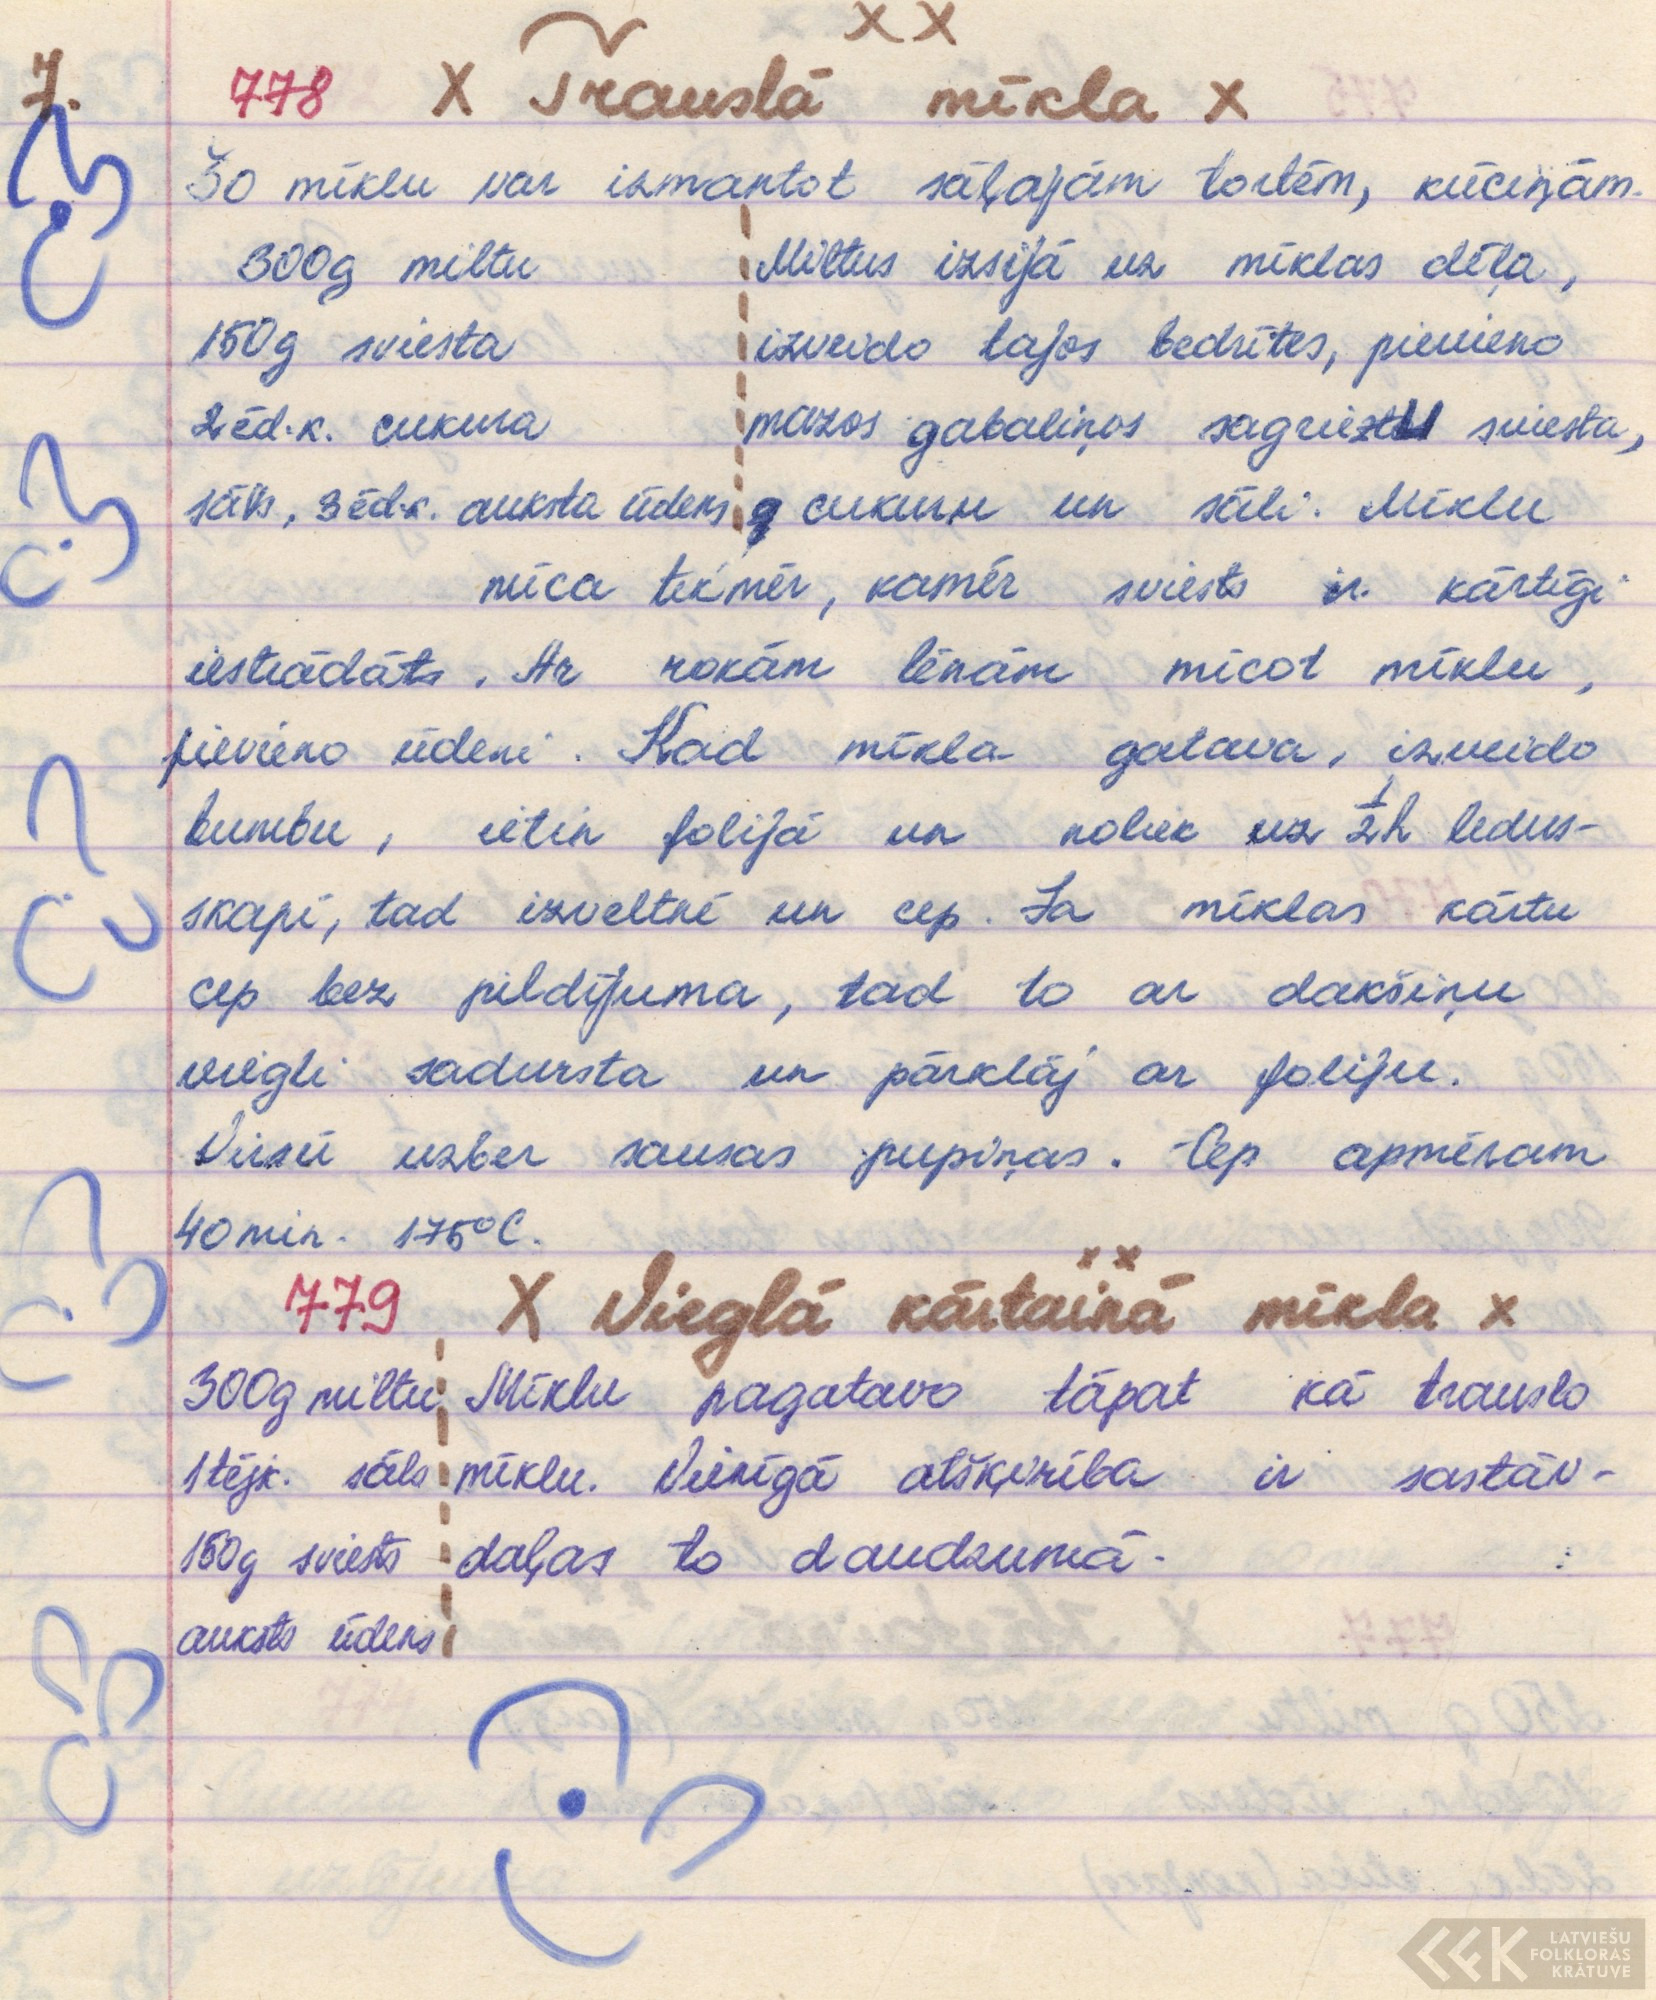 x x
7. 778 x Trauslā mīkla x
Šo mīklu var izmantot sāļajām tortēm, kūciņām.
300g miltu
150g sviesta
2 ēd.k. cukura
sāls, 3 ēd.k. auksta ūdens
Miltus izsijā uz mīklas dēļa,
izveido tajos bedrītes, pievieno
mazos gabaliņos sagrieztu sviesta,
cukuru un sāli. Mīklu
mīca tikmēr, kamēr sviests ir kārtīgi
iestrādāts. Ar rokām lēnām mīcot mīklu,
pievieno ūdeni. Kad mīkla gatava, izveido
bumbu, ietin folijā un noliek uz 1/2 h ledus-
skapī, tad izveltnē un cep. Ja mīklas kārtu
cep bez pildījuma, tad to ar dakšiņu
viegli sadursta un pārklāj ar foliju.
Virsū uzber sausas pupiņas. Cep apmēram
40 min. 175°C.
x x
779 x Vieglā kārtainā mīkla x
300g miltu
1 tējk. sāls
150g sviests
auksts ūdens
Mīklu pagatavo tāpat kā trauslo
mīklu. Vienīgā atšķirība ir sastāv-
daļas to daudzumā.
LATVIEŠU
FOLKLORAS
KRĀTUVE